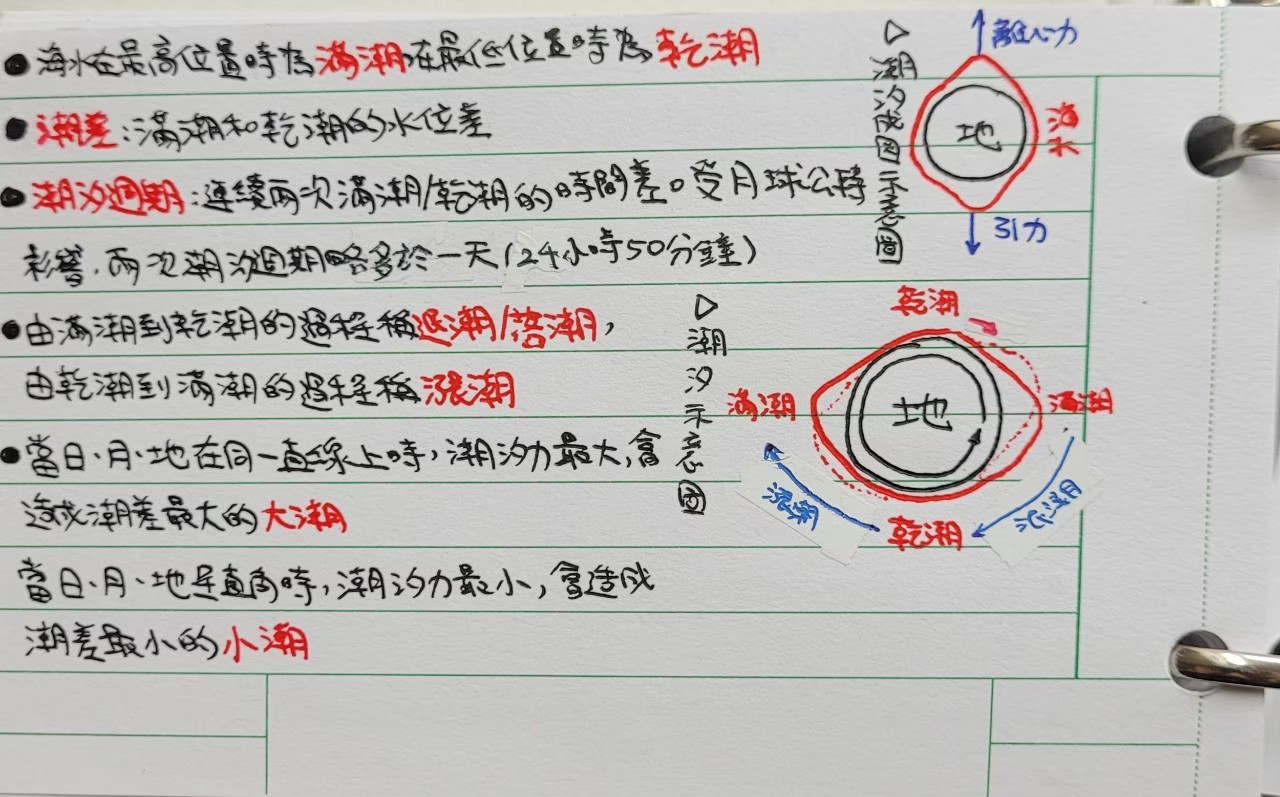 ●海水在最高位置時為滿潮在最低位置時為乾潮
●潮差:滿潮和乾潮的水位差
●潮汐週期:連續兩次滿潮/乾潮的時間差。受月球公轉
影響,兩次潮汐週期略多於一天(24小時50分鐘)
●由滿潮到乾潮的過程稱退潮/落潮,
由乾潮到滿潮的過程稱漲潮
●當日、月、地在同一直線上時,潮汐力最大,會
造成潮差最大的大潮
當日、月、地呈直角時,潮汐力最小,會造成
潮差最小的小潮
▷潮汐成因示意圖
離心力
地
海水
引力
▷潮汐示意圖
乾潮
滿潮
地
滿潮
漲潮
乾潮